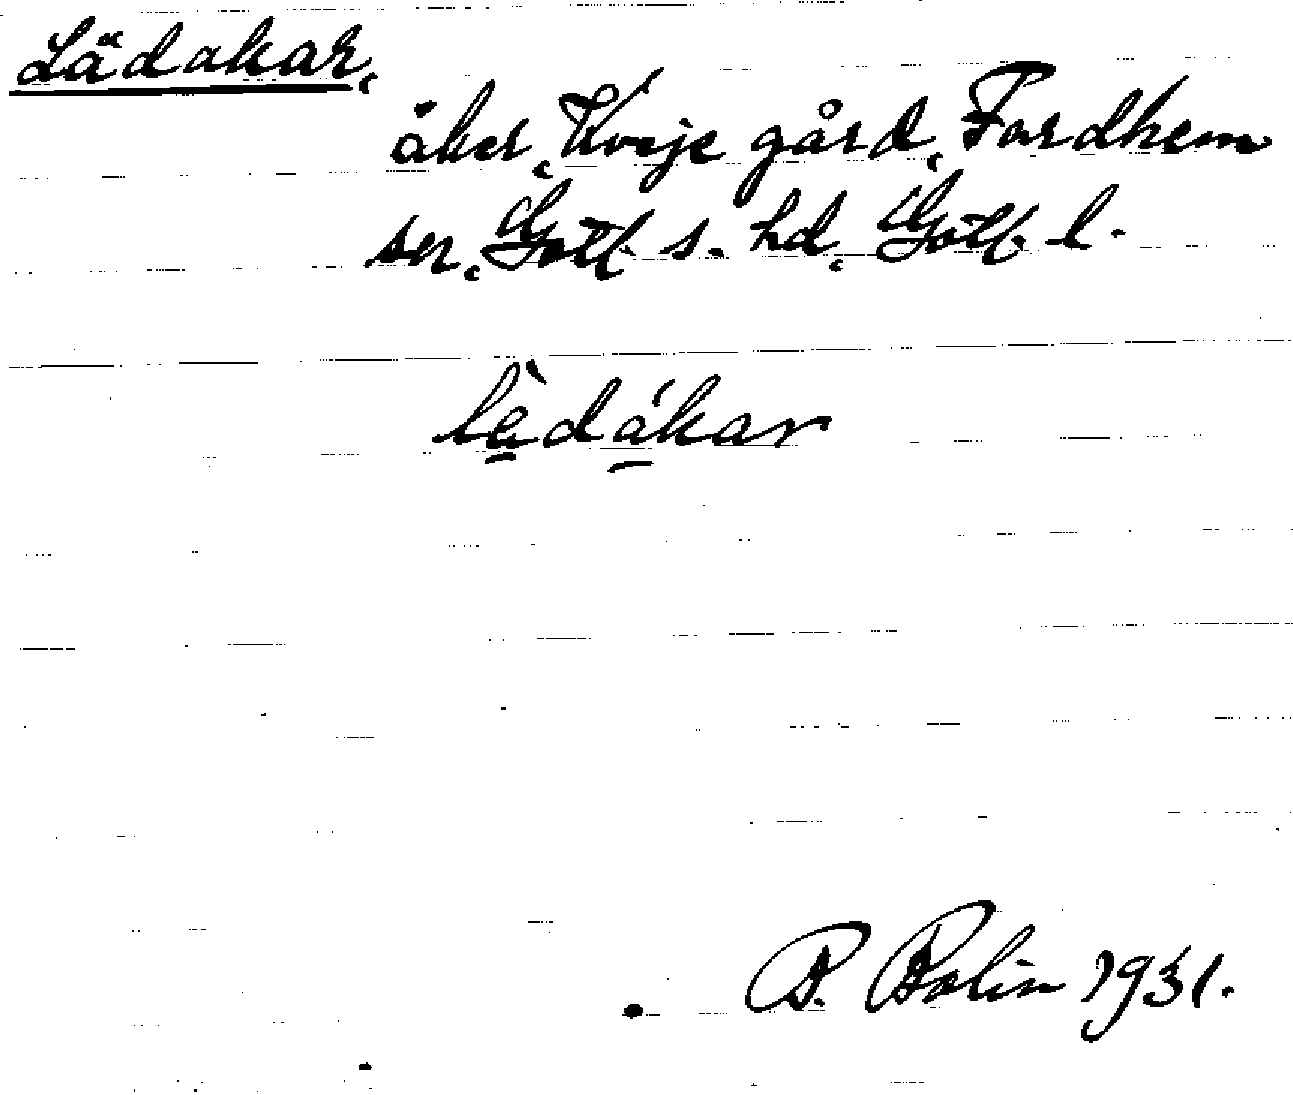 Lädakar,
åker, Kvije gård, Fardhem
sn, Gotl. s. hd, Gotl. l.
lèdákar
B. Bolin 1931.